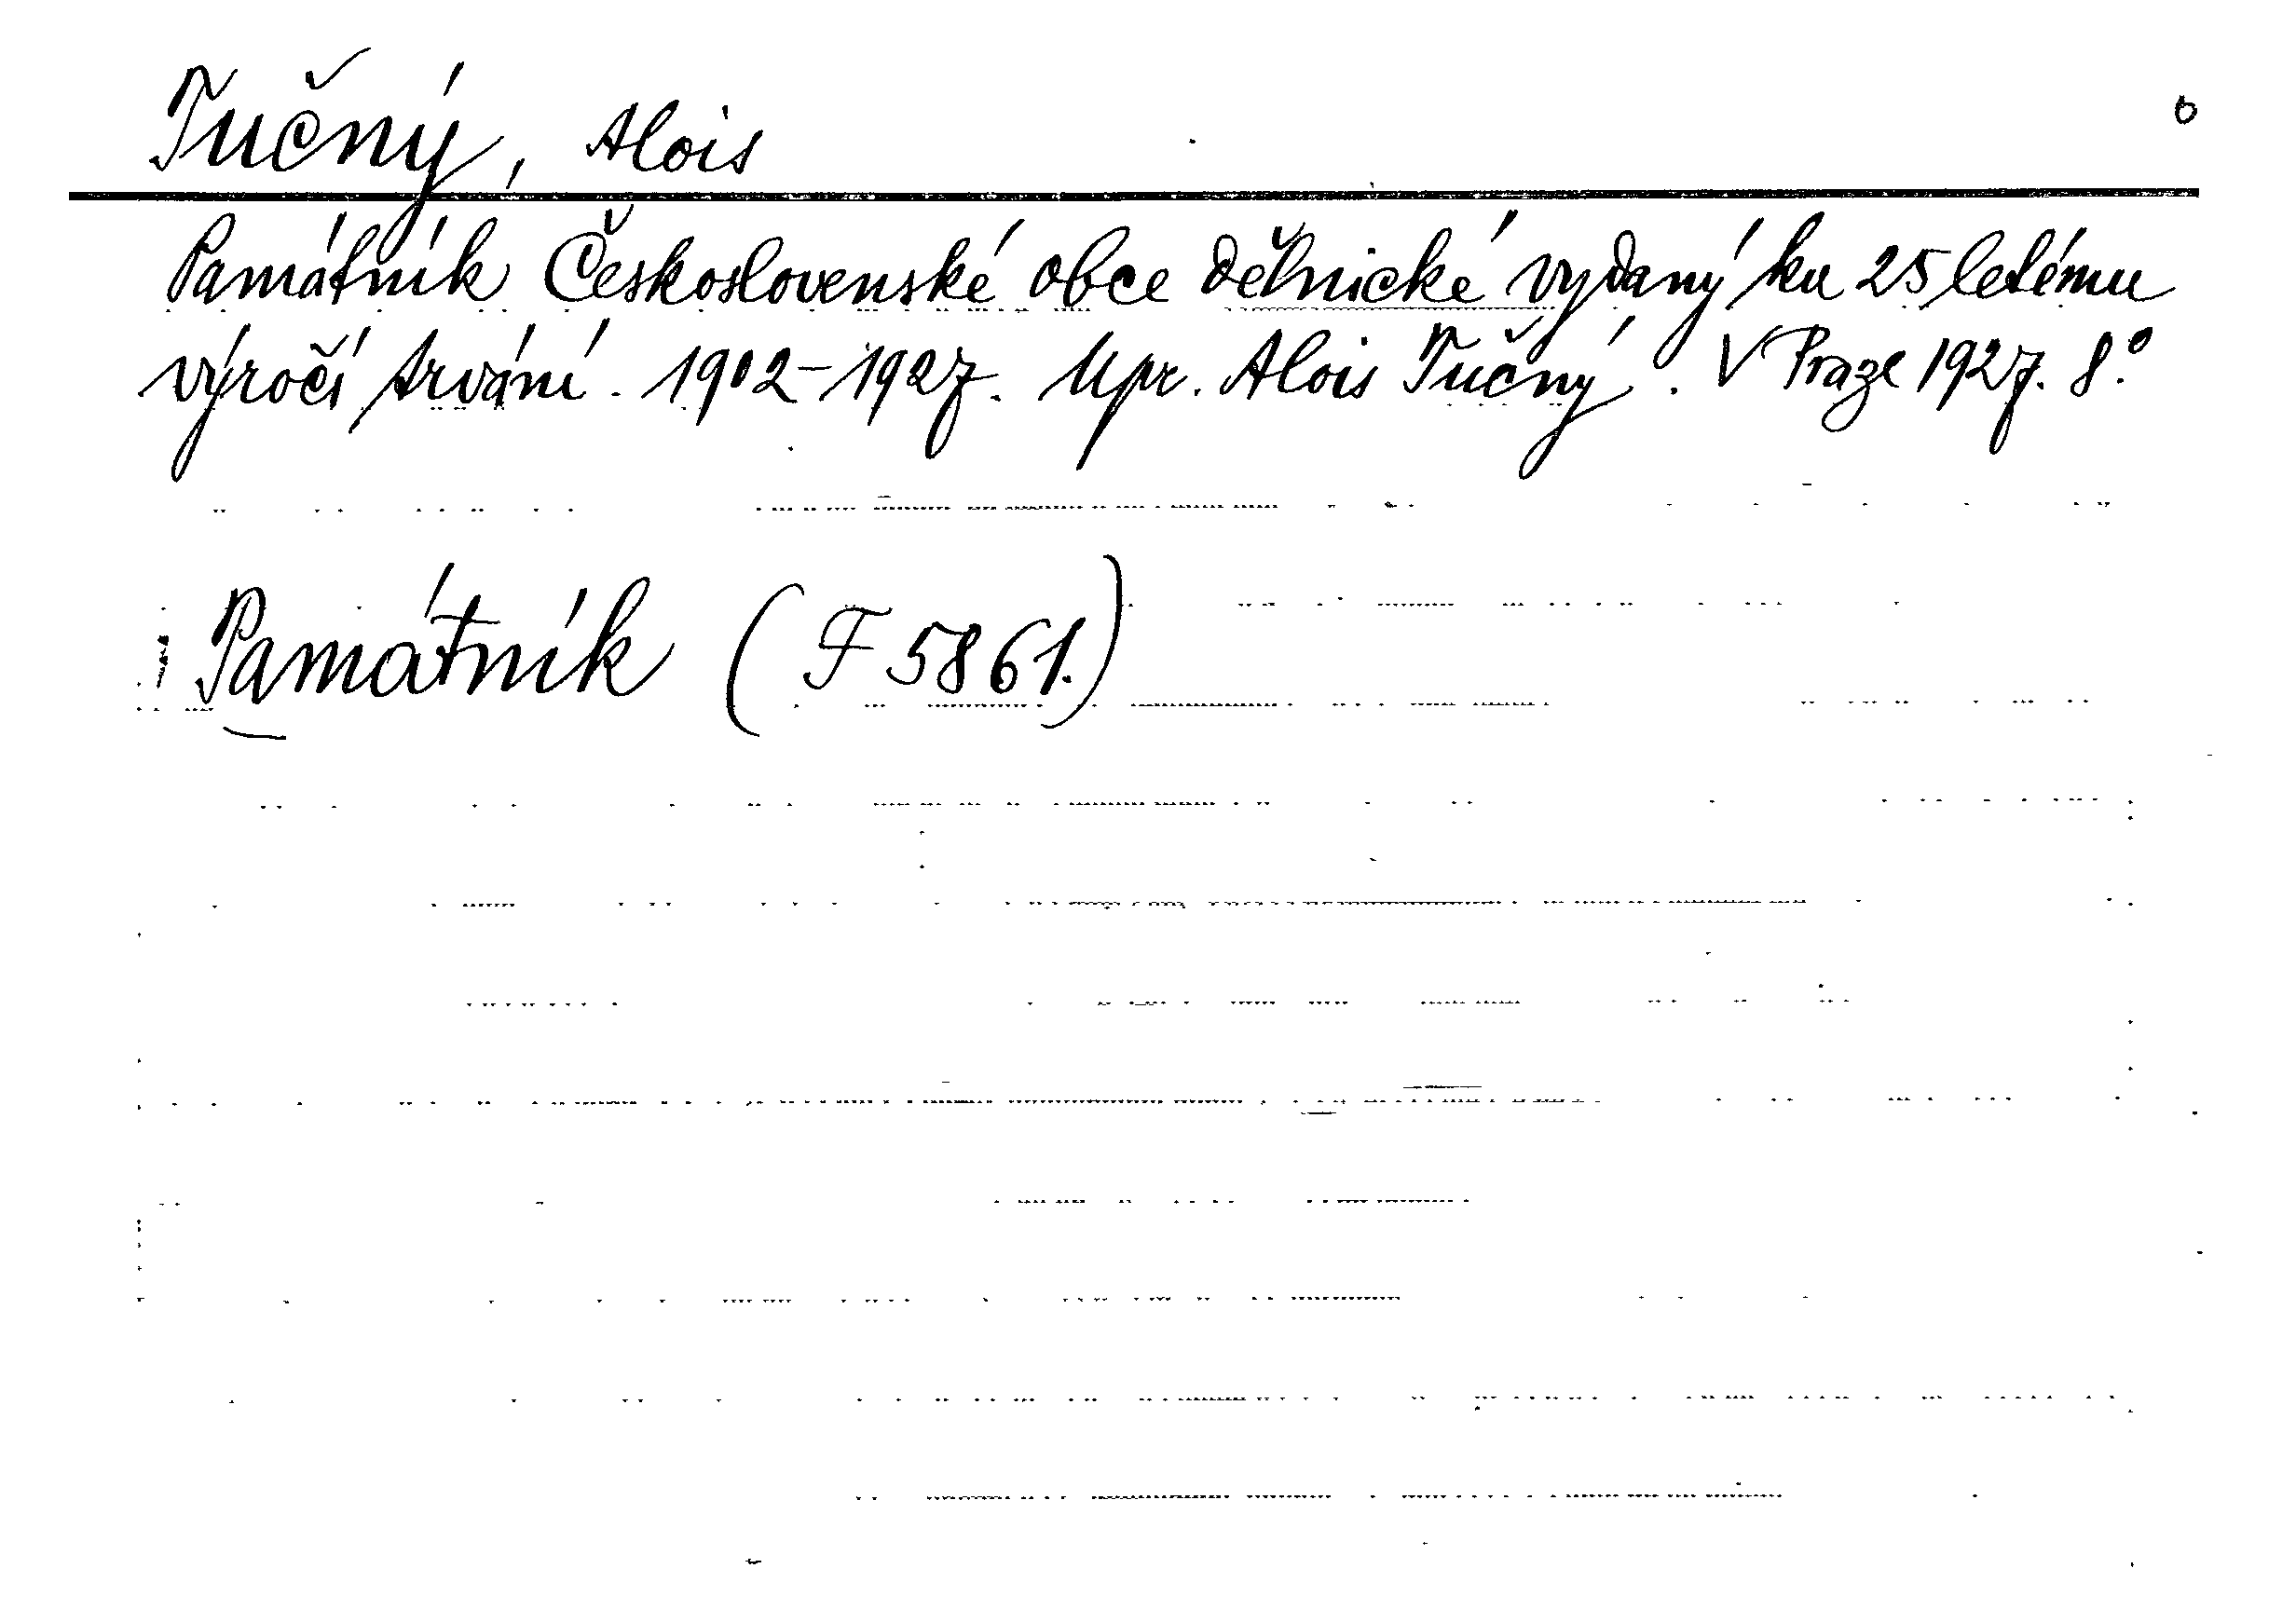 Tučný, Alois
Památník Československé obce dělnické vydaný ku 25letému
výročí trvání. 1902-1927. Upr. Alois Tučný. V Praze 1927. 8°.
Památník (F 5861.)